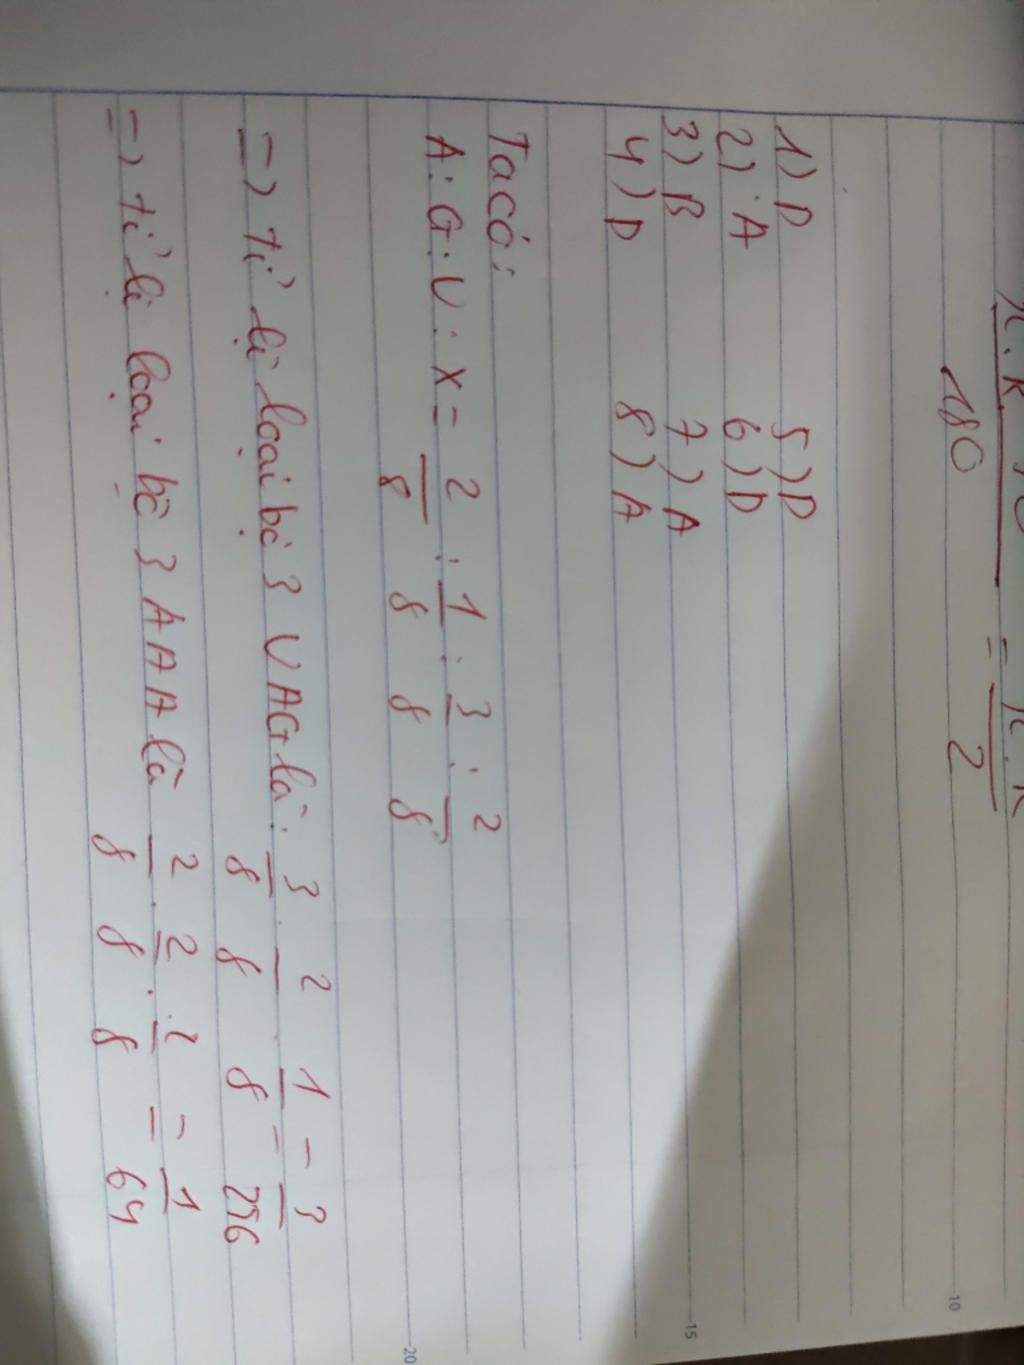 π.R = π.R
180 2
1) D 5) D
2) A 6) D
3) B 7) A
4) D 8) A
Ta có:
A:G:U:X = 2/8 : 1/8 : 3/8 : 2/8
=> tỉ lệ loại bộ 3 UAG là: 3/8 . 2/8 . 1/8 = 3/256
=> tỉ lệ loại bộ 3 AAA là 2/8 . 2/8 . 2/8 = 1/64
10
15
20